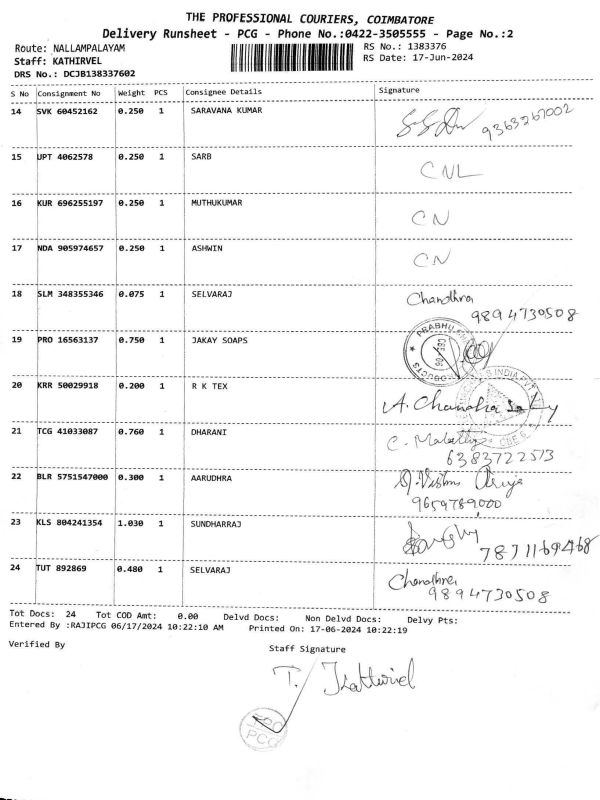 THE PROFESSIONAL COURIERS, COIMBATORE
Delivery Runsheet - PCG - Phone No.:0422-3505555 - Page No.:2
Route: NALLAMPALAYAM RS No.: 1383376
Staff: KATHIRVEL RS Date: 17-Jun-2024
DRS No.: DCJB138337602
S No Consignment No Weight PCS Consignee Details Signature
14 SVK 60452162 0.250 1 SARAVANA KUMAR 9363267002
15 UPT 4062578 0.250 1 SARB CNL
16 KUR 696255197 0.250 1 MUTHUKUMAR CN
17 NDA 905974657 0.250 1 ASHWIN CN
18 SLM 348355346 0.075 1 SELVARAJ Chandhra
9894730508
19 PRO 16563137 0.750 1 JAKAY SOAPS PRABHU
20 KRR 50029918 0.200 1 R K TEX A. Chandra
21 TCG 41033087 0.760 1 DHARANI C.
6383722513
22 BLR 5751547000 0.300 1 AARUDHRA
9659789000
23 KLS 804241354 1.030 1 SUNDHARRAJ
7871169468
24 TUT 892869 0.480 1 SELVARAJ Chandhra
9894730508
Tot Docs: 24 Tot COD Amt: 0.00 Delvd Docs: Non Delvd Docs: Delvy Pts:
Entered By :RAJIPCG 06/17/2024 10:22:10 AM Printed On: 17-06-2024 10:22:19
Verified By Staff Signature
T. Kathirvel
PCG